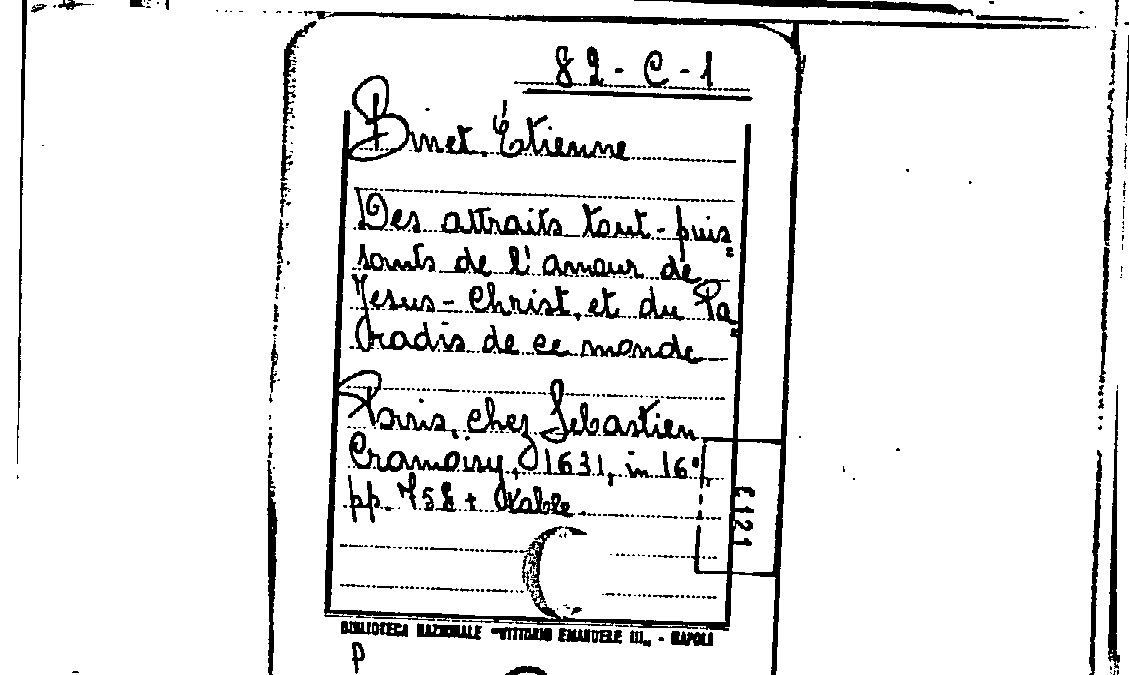 82-C-1
Binet Étienne
Des attraits tout-puis"
sants de l'amour de
Jesus-Christ, et du Pa"
radis de ce monde
Paris, chez Sebastien
Cramoisy, 1631, in 16°,
pp. 758 + Table
E121
BIBLIOTECA NAZIONALE "VITTORIO EMANUELE III" - NAPOLI
P